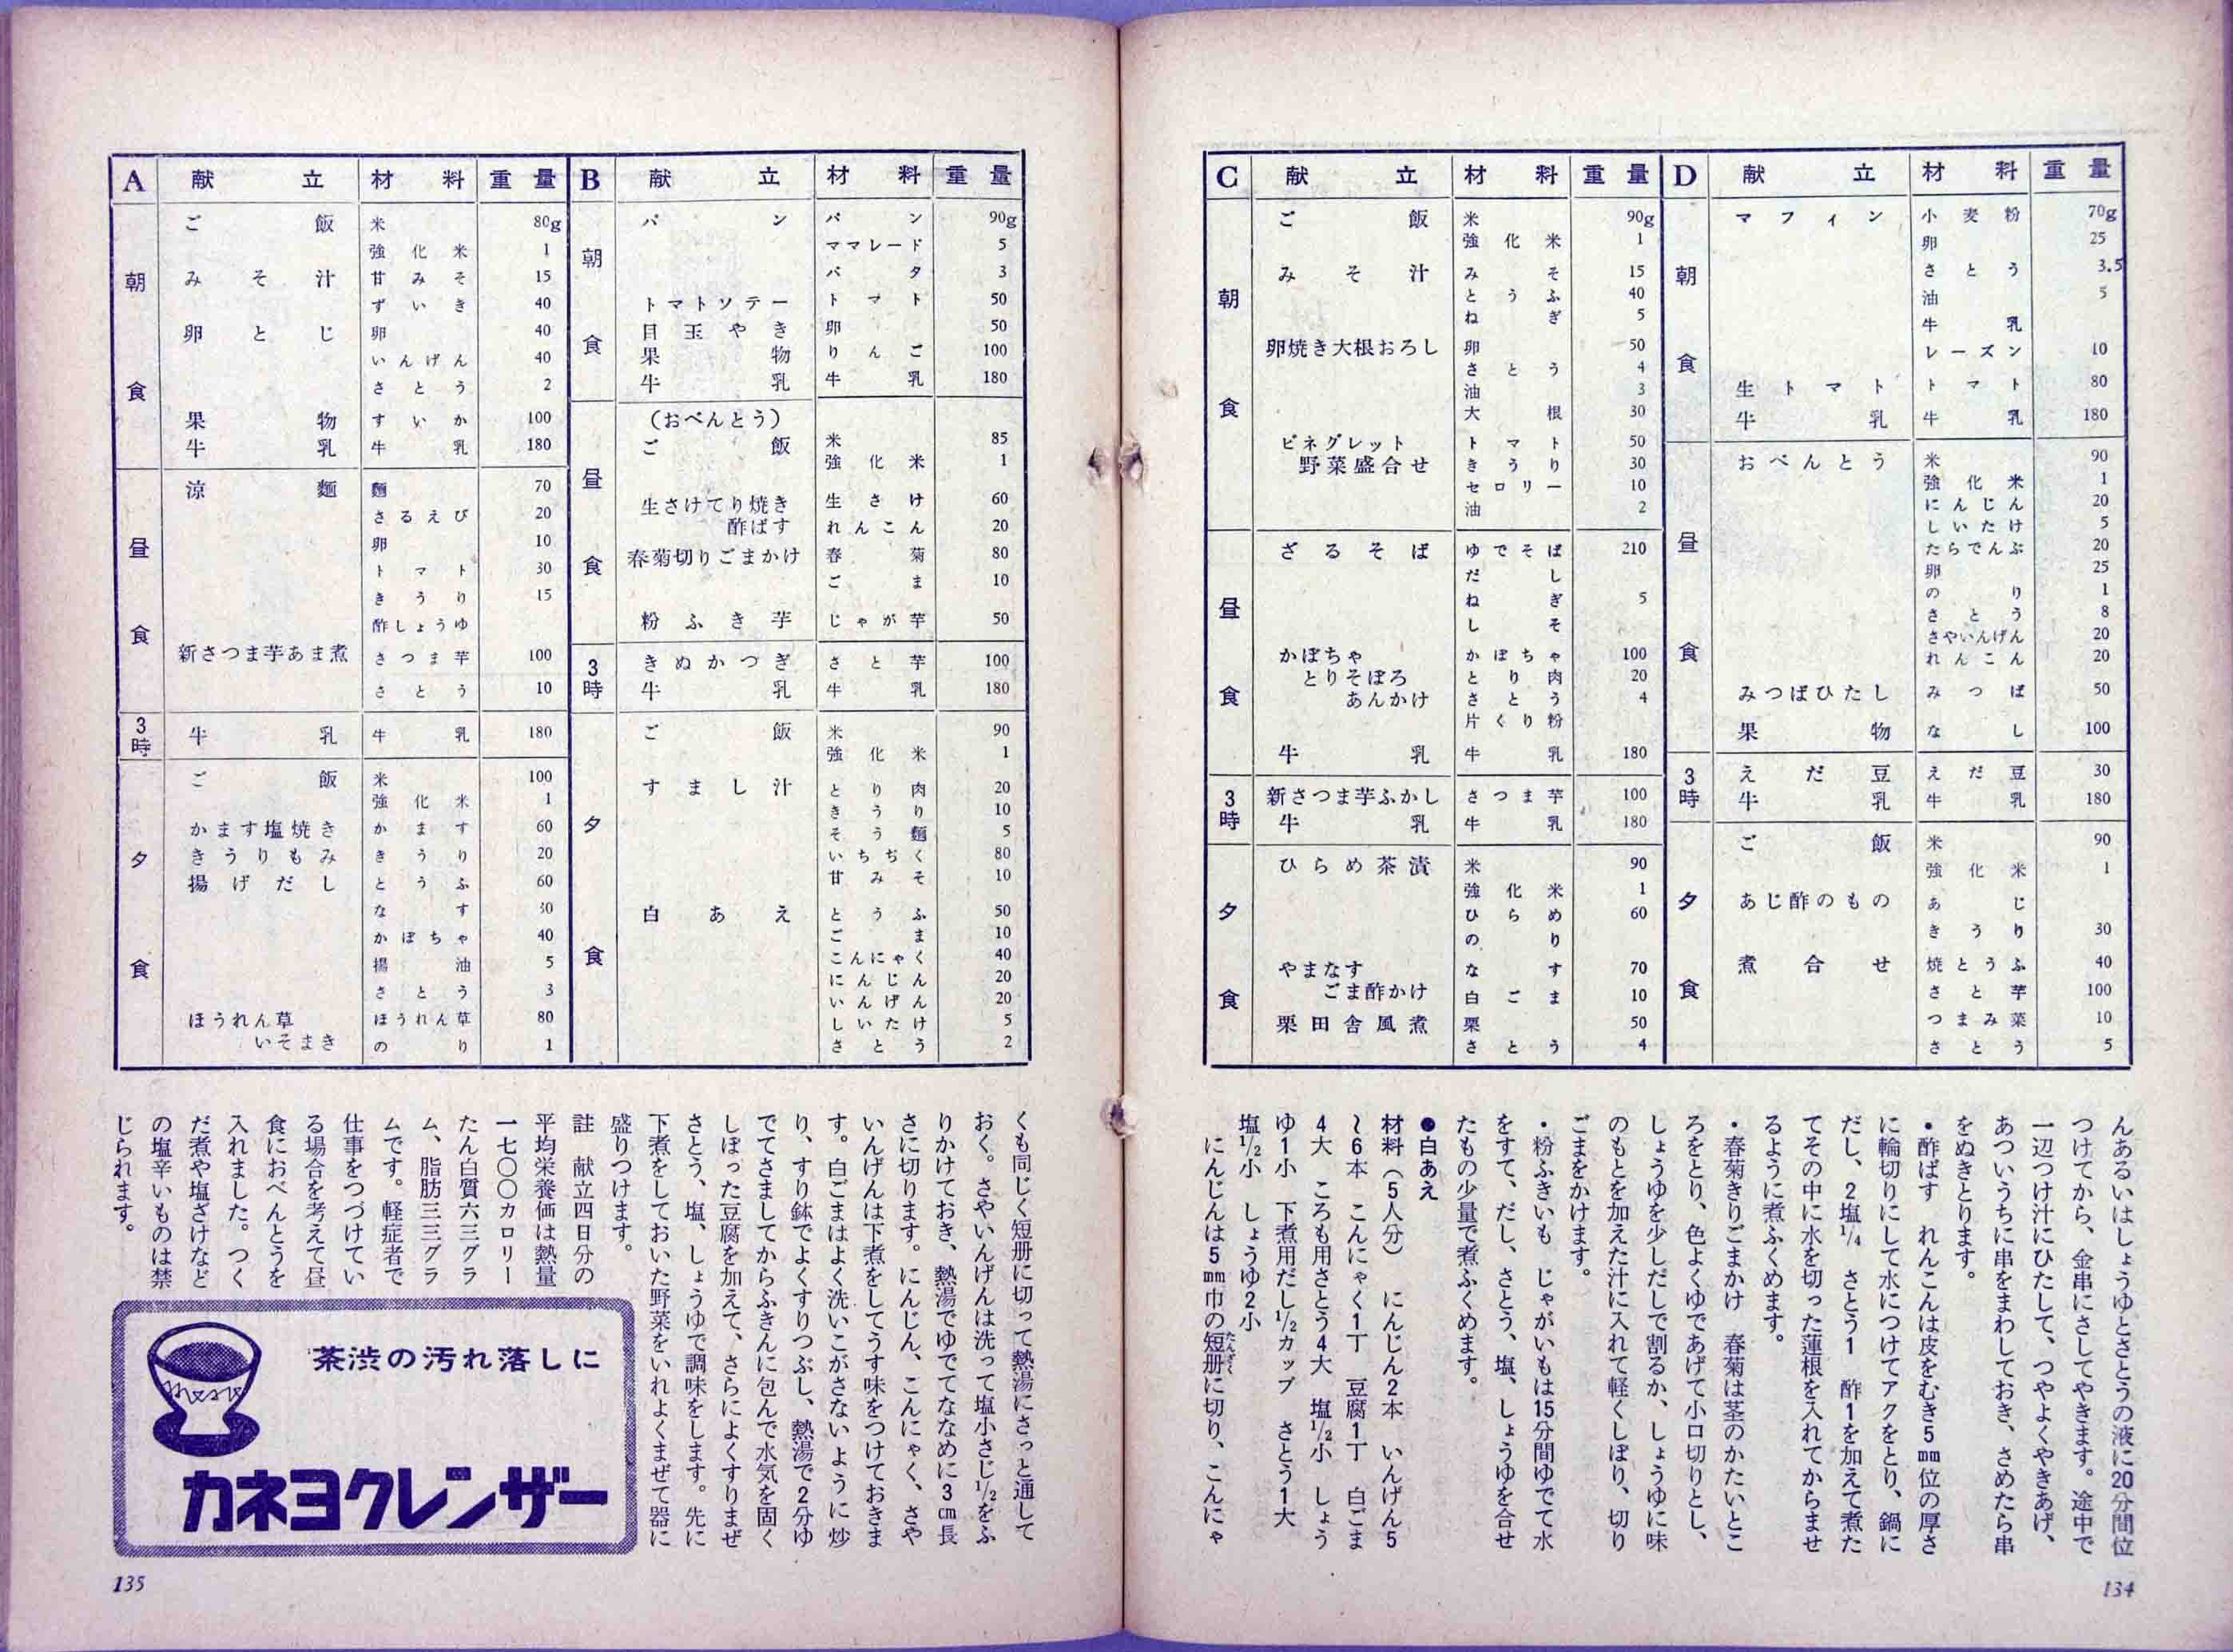 C 献立 材料 重量
朝食
ご飯 米 90g
強化米 1
みそ汁 みそ 15
とうふ 40
ねぎ 5
卵焼き大根おろし 卵 50
さとう 4
油 3
大根 30
ビネグレット トマト 50
野菜盛合せ きうり 30
セロリー 10
油 2
昼食
ざるそば ゆでそば 210
だし
ねぎ 5
しそ
かぼちゃ かぼちゃ 100
とりそぼろ とり肉 20
あんかけ さとう 4
片くり粉
牛乳 牛乳 180
3時
新さつま芋ふかし さつま芋 100
牛乳 牛乳 180
夕食
ひらめ茶漬 米 90
強化米 1
ひらめ 60
のり
やまなす なす 70
ごま酢かけ 白ごま 10
栗田舎風煮 栗 50
さとう 4
D 献立 材料 重量
朝食
マフィン 小麦粉 70g
卵 25
さとう 3.5
油 5
牛乳
レーズン 10
生トマト トマト 80
牛乳 牛乳 180
昼食
おべんとう 米 90
強化米 1
にんじん 20
しいたけ 5
たらでんぶ 20
卵 25
のり 1
さとう 8
さやいんげん 20
れんこん 20
みつばひたし みつば 50
果物 なし 100
3時
えだ豆 えだ豆 30
牛乳 牛乳 180
夕食
ご飯 米 90
強化米 1
あじ酢のもの あじ
きうり 30
煮合せ 焼とうふ 40
さと芋 100
つまみ菜 10
さとう 5
んあるいはしょうゆとさとうの液に20分間位
つけてから、金串にさしてやきます。途中で
一辺つけ汁にひたして、つやよくやきあげ、
あついうちに串をまわしておき、さめたら串
をぬきとります。
・酢ばす　れんこんは皮をむき5㎜位の厚さ
に輪切りにして水につけてアクをとり、鍋に
だし、2塩1/4　さとう1　酢1を加えて煮た
てその中に水を切った蓮根を入れてからませ
るように煮ふくめます。
・春菊きりごまかけ　春菊は茎のかたいとこ
ろをとり、色よくゆであげて小口切りとし、
しょうゆを少しだしで割るか、しょうゆに味
のもとを加えた汁に入れて軽くしぼり、切り
ごまをかけます。
・粉ふきいも　じゃがいもは15分間ゆでて水
をすて、だし、さとう、塩、しょうゆを合せ
たもの少量で煮ふくめます。
●白あえ
材料（5人分）　にんじん2本　いんげん5
〜6本　こんにゃく1丁　豆腐1丁　白ごま
4大　ころも用さとう4大　塩1/2小　しょう
ゆ1小　下煮用だし1/2カップ　さとう1大
塩1/2小　しょうゆ2小
にんじんは5㎜巾の短册たんざくに切り、こんにゃ
134
A 献立 材料 重量
朝食
ご飯 米 80g
強化米 1
みそ汁 甘みそ 15
ずいき 40
卵とじ 卵 40
いんげん 40
さとう 2
果物 すいか 100
牛乳 牛乳 180
昼食
涼麵 麵 70
さるえび 20
卵 10
トマト 30
きうり 15
酢しょうゆ
新さつま芋あま煮 さつま芋 100
さとう 10
3時
牛乳 牛乳 180
夕食
ご飯 米 100
強化米 1
かます塩焼き かます 60
きうりもみ きうり 20
揚げだし とうふ 60
なす 30
かぼちゃ 40
揚油 5
さとう 3
ほうれん草 ほうれん草 80
いそまき のり 1
B 献立 材料 重量
朝食
パン パン 90g
ママレード 5
バタ 3
トマトソテー トマト 50
目玉やき 卵 50
果物 りんご 100
牛乳 牛乳 180
昼食
（おべんとう）
ご飯 米 85
強化米 1
生さけてり焼き 生さけ 60
酢ばす れんこん 20
春菊切りごまかけ 春菊 80
ごま 10
粉ふき芋 じゃが芋 50
3時
きぬかつぎ さと芋 100
牛乳 牛乳 180
夕食
ご飯 米 90
強化米 1
すまし汁 とり肉 20
きうり 10
そう麵 5
いちぢく 80
甘みそ 10
白あえ とうふ 50
ごま 10
こんにゃく 40
にんじん 20
いんげん 20
しいたけ 5
さとう 2
くも同じく短册に切って熱湯にさっと通して
おく。さやいんげんは洗って塩小さじ1/2をふ
りかけておき、熱湯でゆでてななめに3㎝長
さに切ります。にんじん、こんにゃく、さや
いんげんは下煮をしてうす味をつけておきま
す。白ごまはよく洗いこがさないように炒
り、すり鉢でよくすりつぶし、熱湯で2分ゆ
でてさましてからふきんに包んで水気を固く
しぼった豆腐を加えて、さらによくすりまぜ
さとう、塩、しょうゆで調味をします。先に
下煮をしておいた野菜をいれよくまぜて器に
盛りつけます。
註　献立四日分の
平均栄養価は熱量
一七〇〇カロリー
たん白質六三グラ
ム、脂肪三三グラ
ムです。軽症者で
仕事をつづけてい
る場合を考えて昼
食におべんとうを
入れました。つく
だ煮や塩ざけなど
の塩辛いものは禁
じられます。
茶渋の汚れ落しに
カネヨクレンザー
135